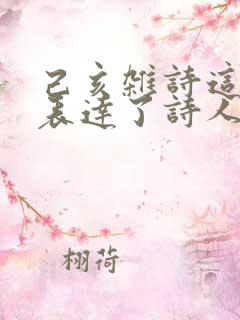 己亥雜詩這
表達了詩人
栩荷